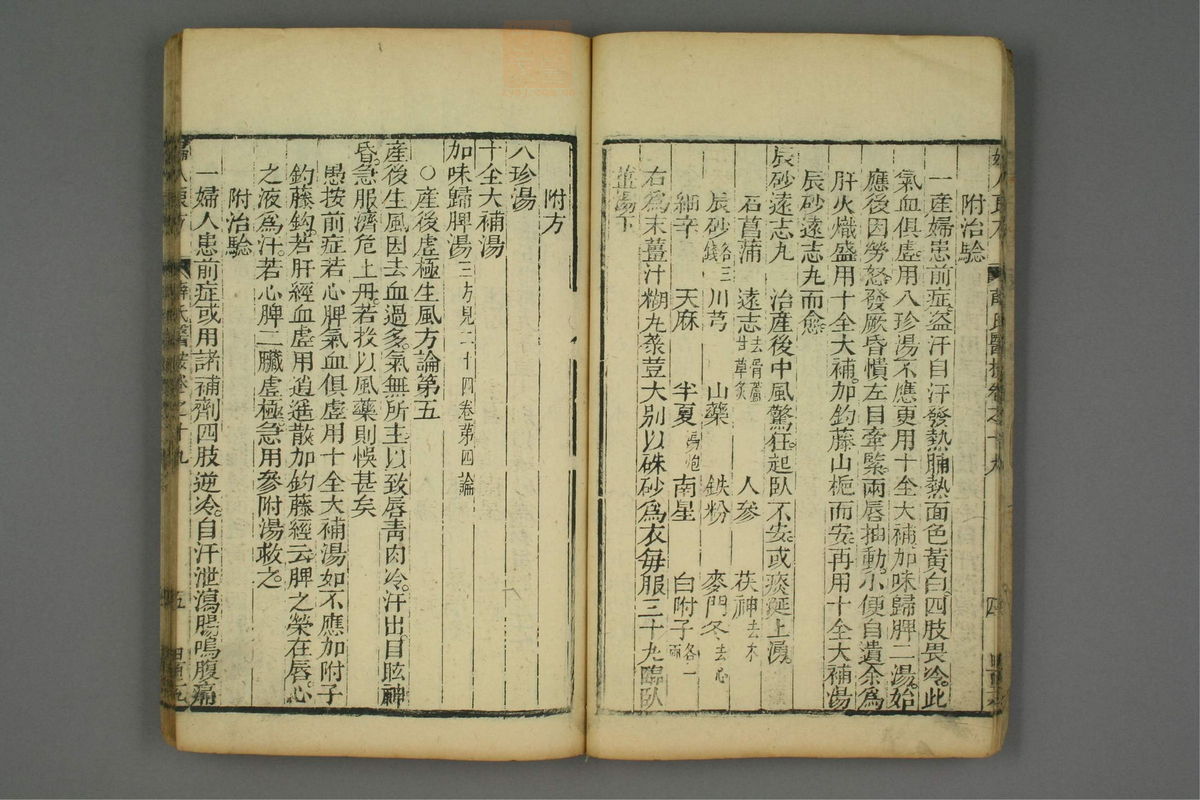 附治驗
一產婦患前症盜汗自汗發熱脯熱面色黃白四肢畏冷此
氣血俱虛用八珍湯不應更用十全大補加味歸脾二湯始
應後因勞怒發厥昏憒左目牽緊兩唇抽動小便自遺余爲
肝火熾盛用十全大補加釣藤山梔而安再用十全大補湯
辰砂遠志丸而愈
辰砂遠志丸 治產後中風驚狂起臥不安或痰涎上湧
石菖蒲 遠志去骨蘆甘草煮 人參 茯神去木
辰砂各三錢 川芎 山藥 鉄粉 麥門冬去心
細辛 天麻 半夏湯炮 南星 白附子各一兩
右爲末薑汁糊丸菉荳大別以硃砂爲衣每服三十丸臨臥
薑湯下
附方
八珍湯
十全大補湯
加味歸脾湯三方見二十四卷第四論
○產後虛極生風方論第五
產後生風因去血過多氣無所主以致唇青肉冷汗出目眩神
昏急服濟危上丹若投以風藥則悞甚矣
愚按前症若心脾氣血俱虛用十全大補湯如不應加附子
釣藤鈎若肝經血虛用逍遙散加釣藤經云脾之榮在唇心
之液爲汗若心脾二臟虛極急用參附湯救之
附治驗
一婦人患前症或用諸補劑四肢逆冷自汗泄瀉腸鳴腹痛
婦人良方 薛氏醫按卷之十九 五